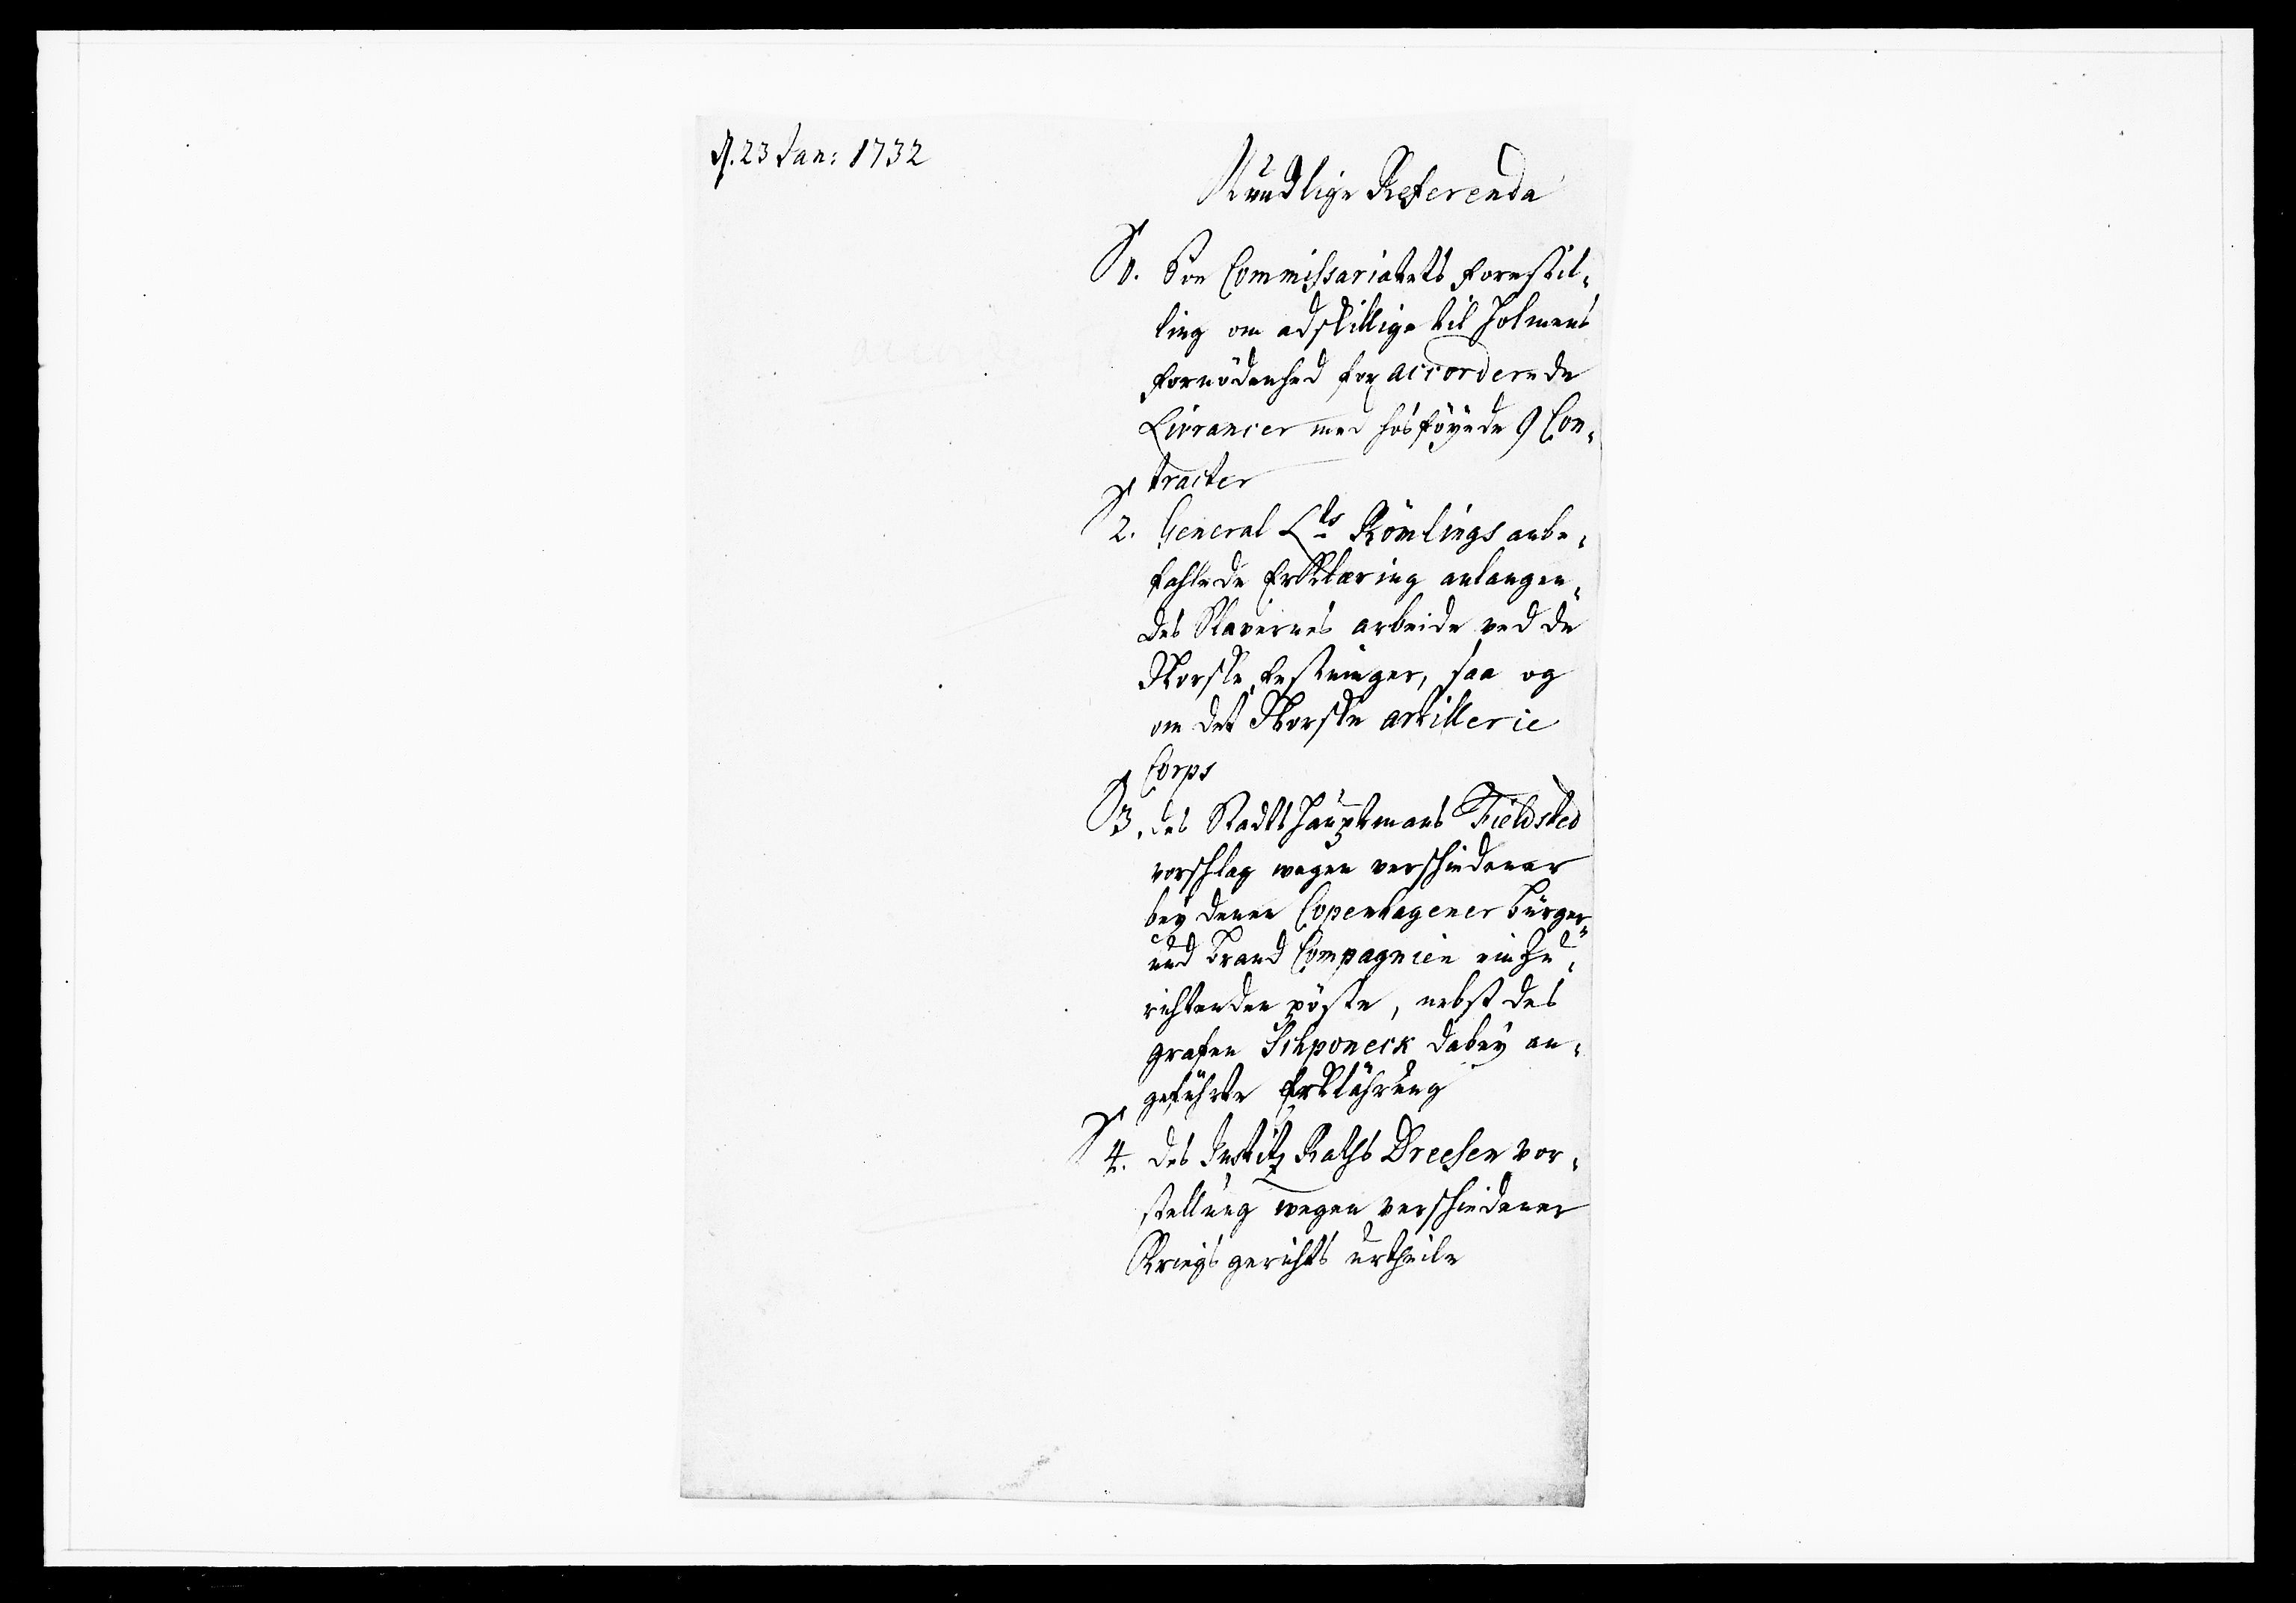 d. 23 Jan: 1732
Mundlige Referenda
1. Söe Commissariatets forestil-
ling om adskillige til Holmens
fornödenhed for accorderede
Livrancer med hosföyede 9 Con-
tracter
2. General Lts Römlings anbe-
fahlede Erklæring anlangen-
des Slavernes arbeide ved de
Norske festninger, saa og
om det Norske artillerie
Corps
3. des Stadtshauptmans Fieldsted
vorschlag wegen verschiedener
bey denen Copenhagener bürger-
und brand Compagnien einzu-
richtenden pöste, nebst des
grafen Schponeck dabey an-
geführte Erklährung
4. des Justitz Raths Dreesen vor-
stellung wegen verschiedener
Kriegs gerichts urtheile